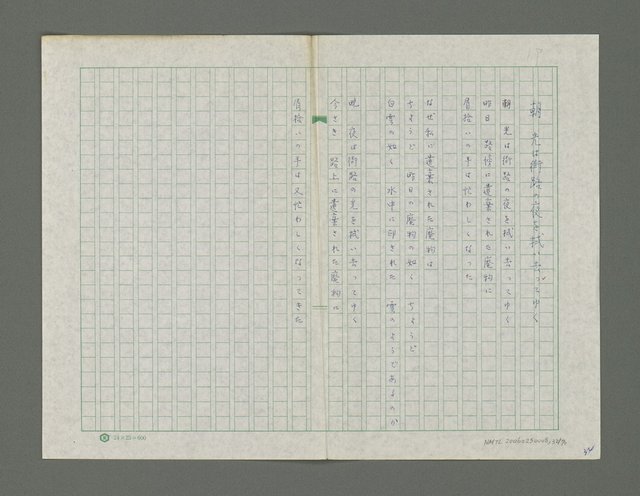 朝 光は街路の夜を拭い去ってゆく
朝 光は街路の夜を拭い去ってゆく
昨日 路傍に遺棄された廃物に
屑拾いの手は忙わしくなった
なぜ私に遺棄された廃物は
ちようど 昨日の廃物の如く ちようど
白雲の如く 水中に印された 雲のようであるのか
晩 夜は街路の光を拭い去ってゆく
今さき 路上に遺棄された廃物に
屑拾いの手は又忙わしくなってきた
24×25=600
NMTL 20060250008